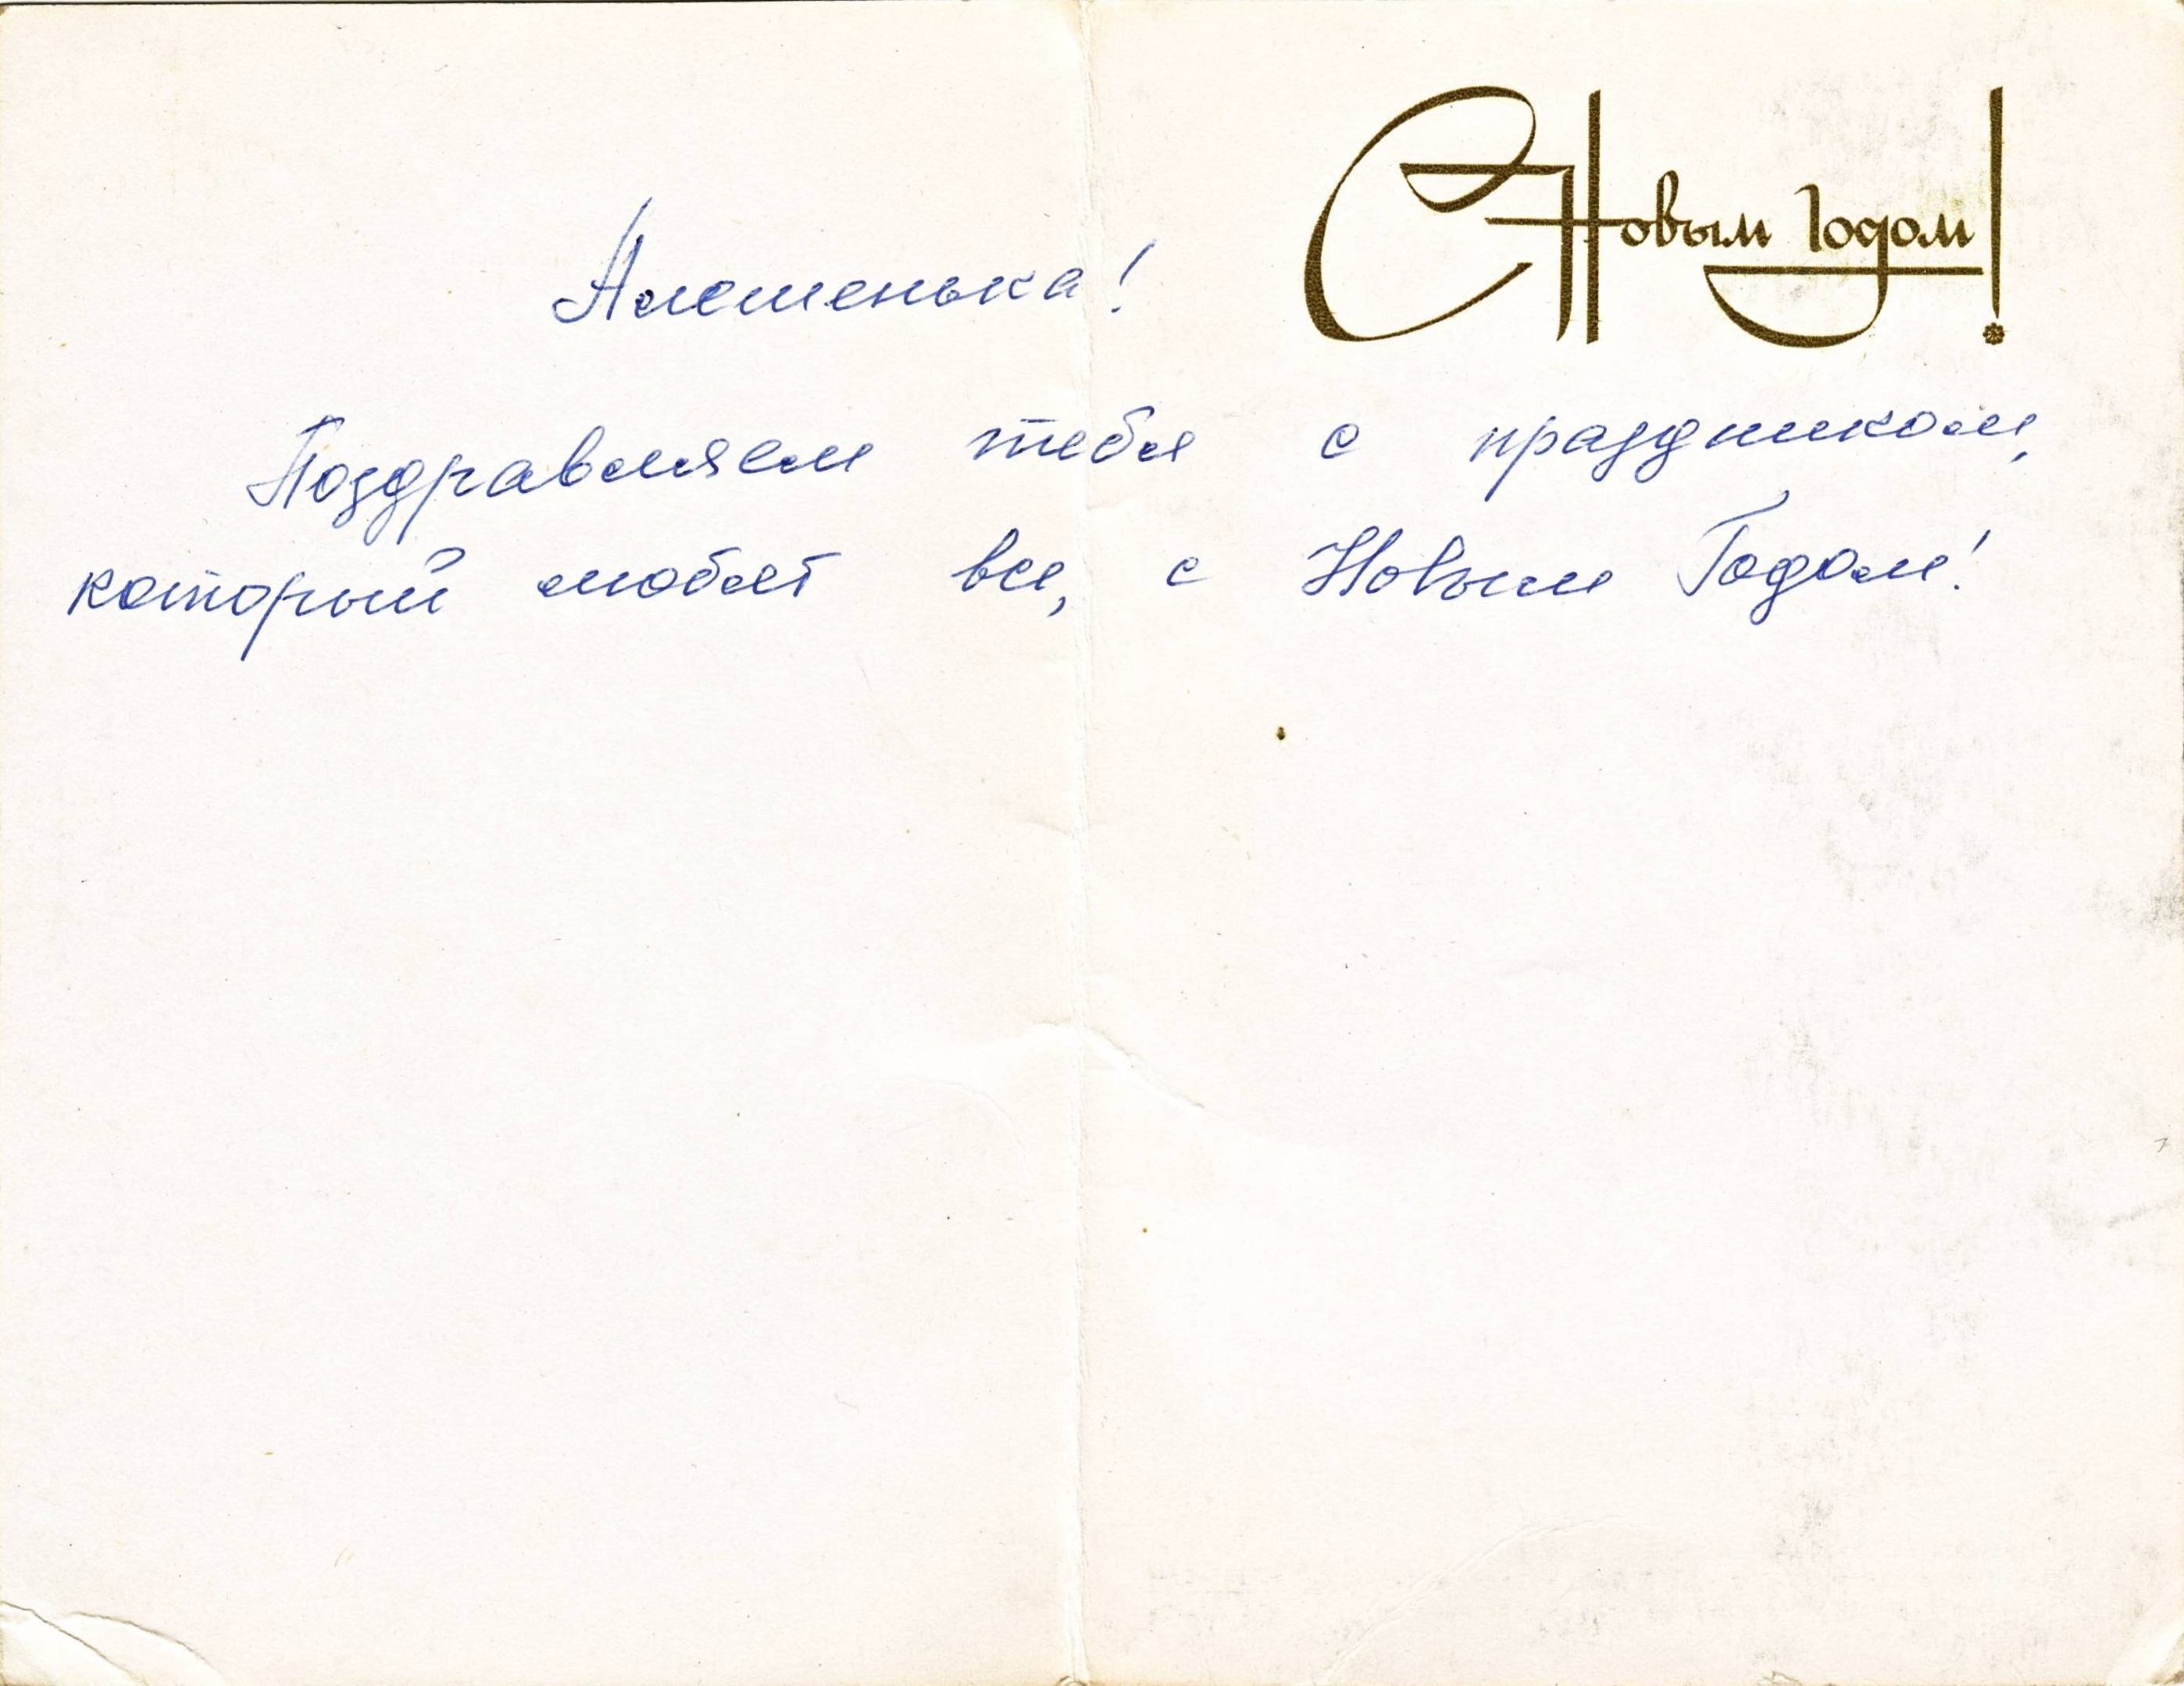 С Новым Годом!
Алешенька!
Поздравляем тебя с праздником,
который любят все, с Новым Годом!